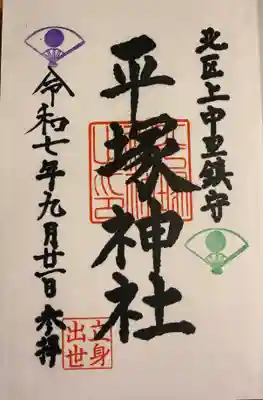 北区上中里鎮守
平塚神社
令和七年九月廿一日参拝
立身
出世